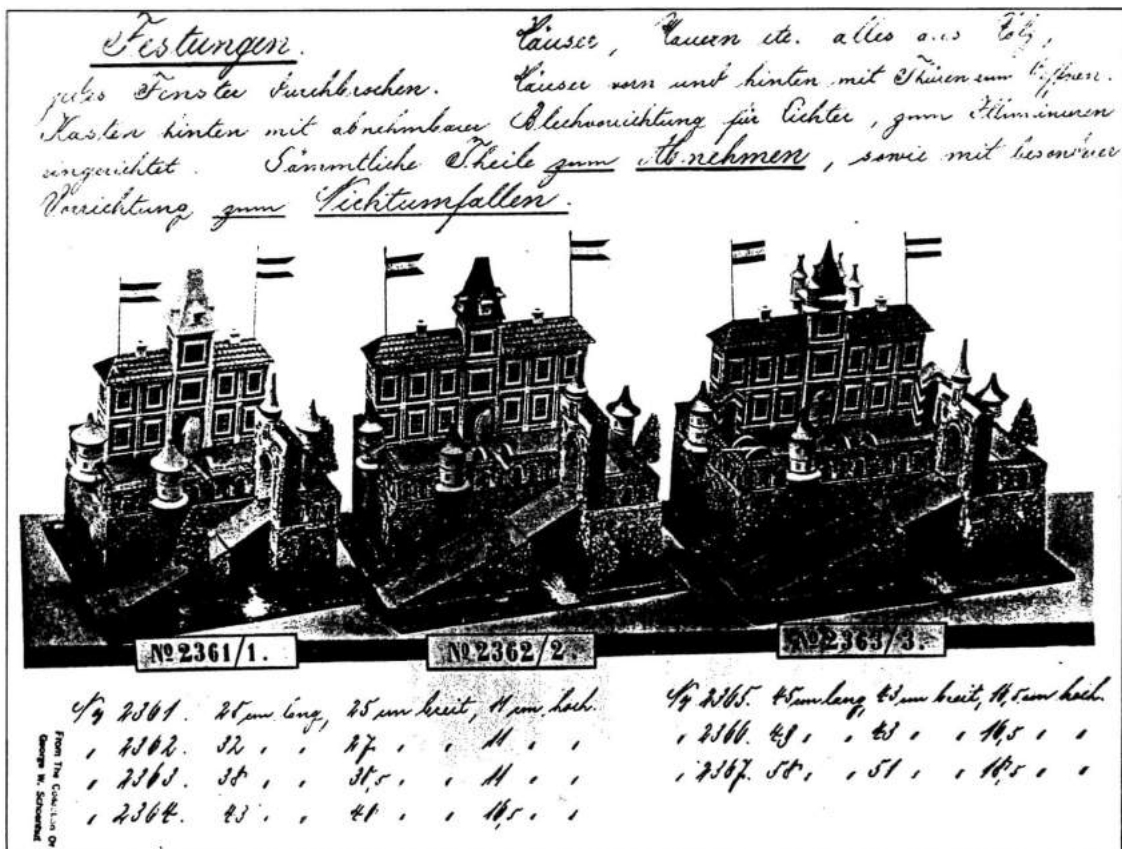 Festungen. Häuser, Mauern etc. alles aus Holz,
jedes Fenster durchbrochen. Häuser vorn und hinten mit Thüren zum Oeffnen.
Kasten hinten mit abnehmbarer Blechvorrichtung für Lichter, zum Illuminieren
eingerichtet. Sämmtliche Theile zum Abnehmen, sowie mit besonderer
Vorrichtung zum Nichtumfallen.
No 2361/1. No 2362/2 No 2363/3.
No 2361. 25 cm lang, 25 cm breit, 11 cm hoch.
" 2362. 32 " " 27 " " 11 " "
" 2363. 38 " " " " 11 " "
" 2364. 43 " " " " 16,5 " "
No 2365. 45 cm lang, 43 cm breit, 16,5 cm hoch.
" 2366. " " 43 " " 16,5 " "
" 2367. 58 " " 51 " " 18,5 " "
From The Collection Of
George W. Schoenhut